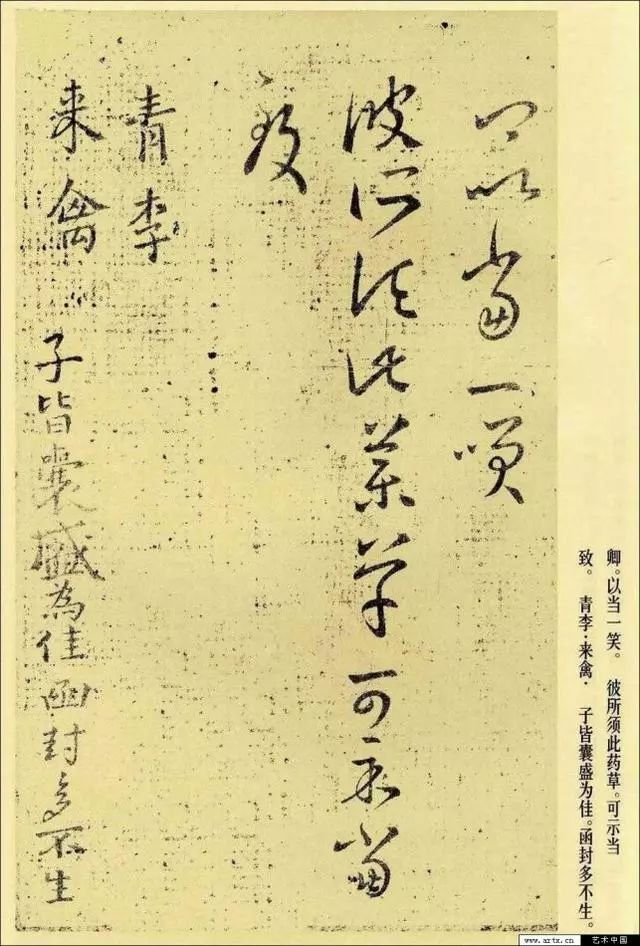 卿以当一笑
彼所须此药草可示当
致
青李
来禽
子皆囊盛为佳函封多不生
卿。以当一笑。 彼所须此药草。可示当
致。 青李·来禽· 子皆囊盛为佳。函封多不生。
www.artx.cn 艺术中国